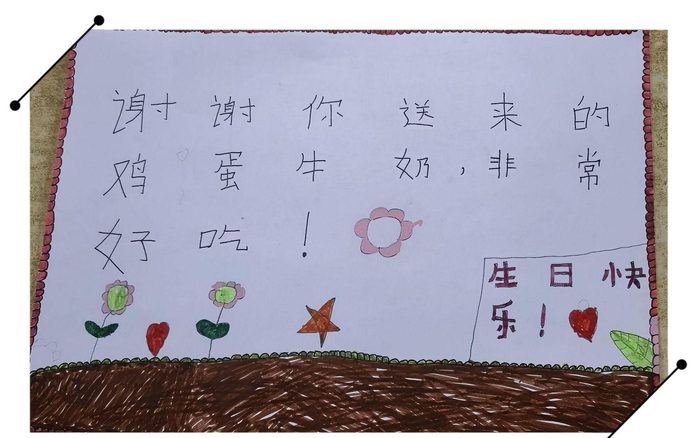 谢谢你送来的
鸡蛋牛奶，非常
好吃！
生日快
乐！